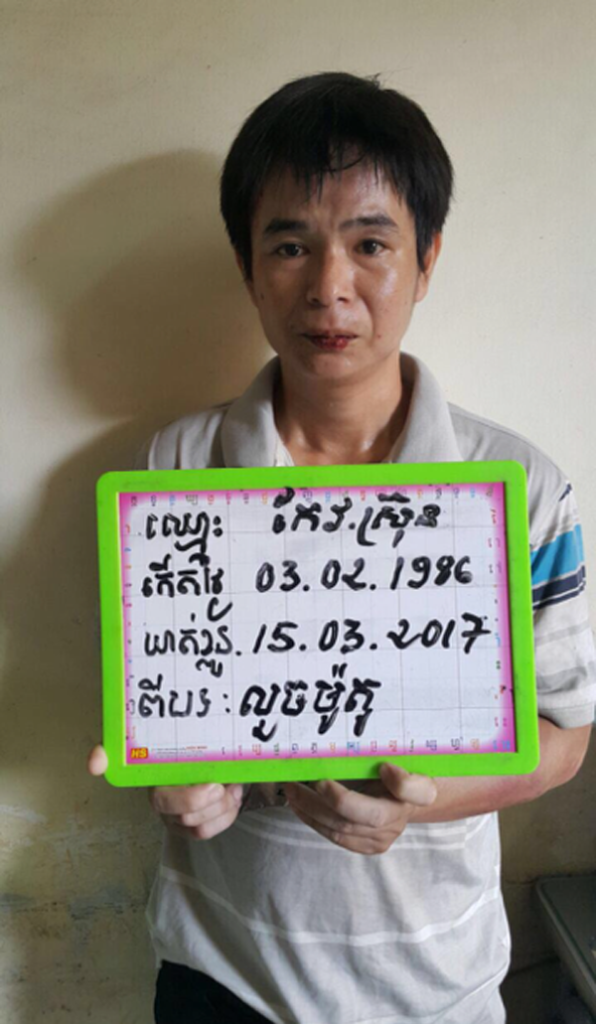 ឈ្មោះ កែវ.ស្រ៊ុន
កើតថ្ងៃ 03.02.1986
ឃាត់ខ្លួន. 15.03.2017
ពីបទ : លួចម៉ូតូ
HS